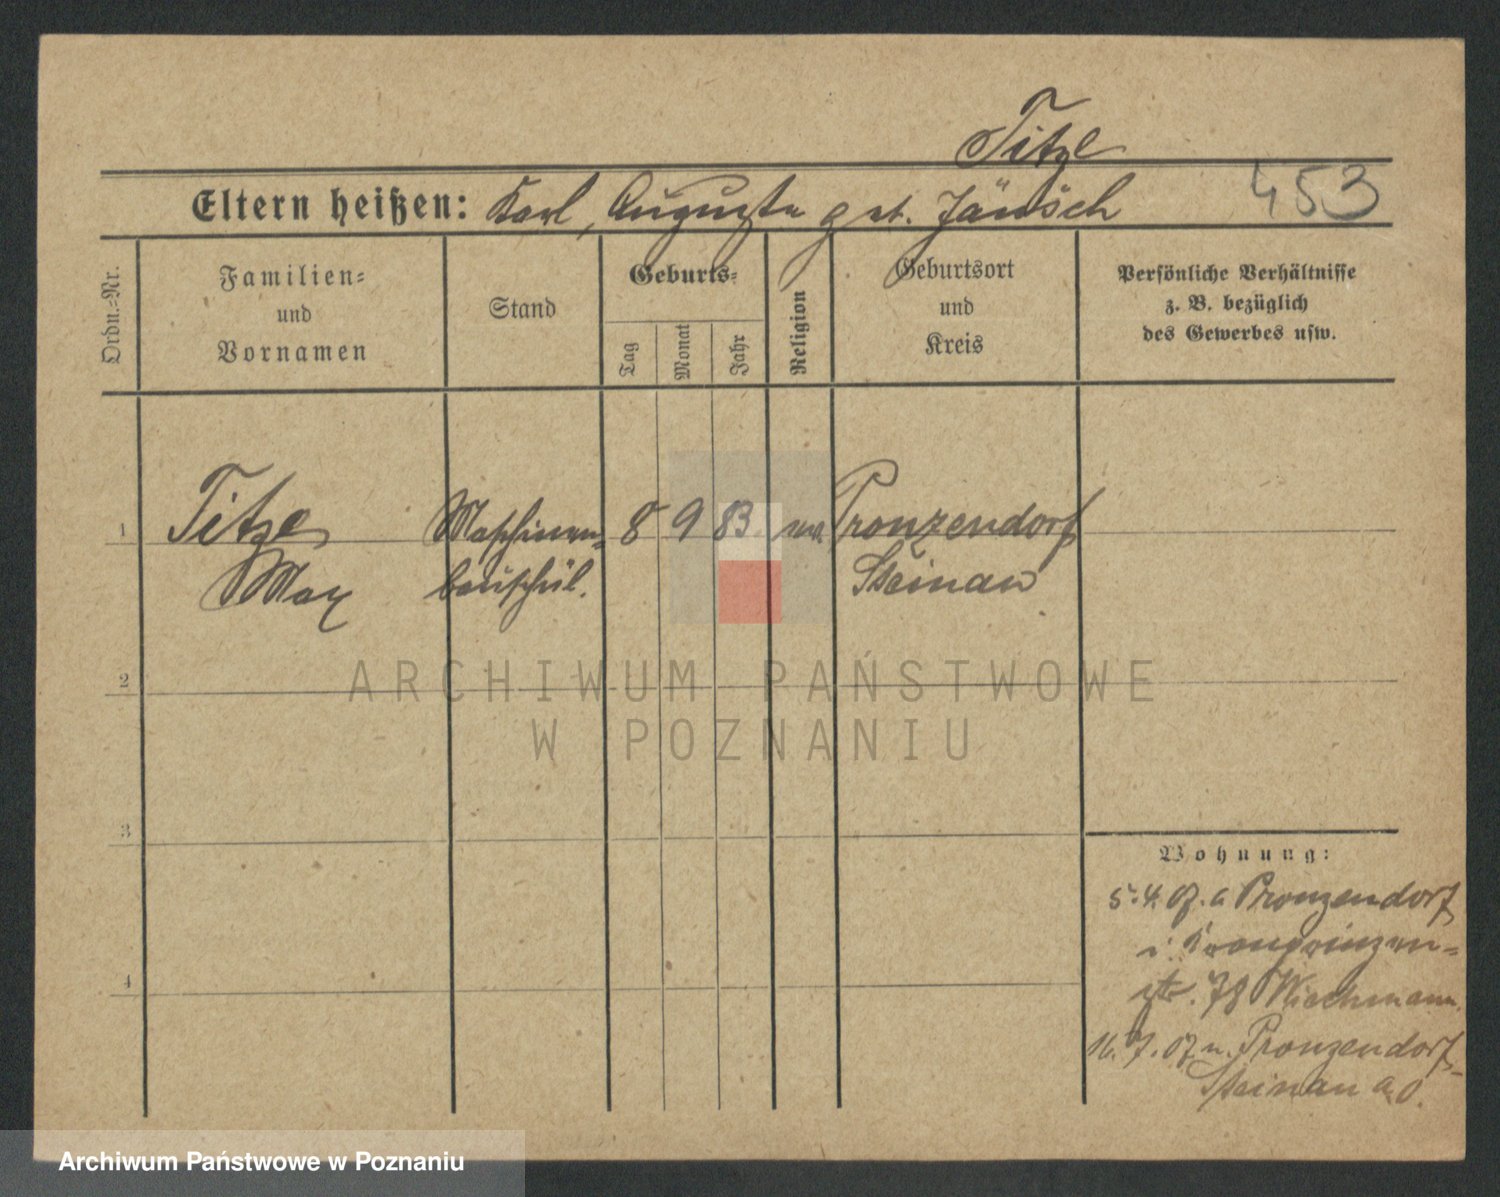 Titze
Eltern heißen: Karl, Auguste geb. Jänsch
453
Ordn.-Nr.
Familien-
und
Vornamen
Stand
Geburts-
Tag
Monat
Jahr
Religion
Geburtsort
und
Kreis
Persönliche Verhältnisse
z. B. bezüglich
des Gewerbes usw.
1
Titze
Max
Maschinen-
bauschül.
8 9 83.
Pronzendorf
Steinau
2
3
4
ARCHIWUM PAŃSTWOWE
W POZNANIU
Wohnung:
5.4.07. a Pronzendorf
i. Kronprinzen-
str. 78 Wiechmann.
16.7.07 n. Pronzendorf
Steinau a. O.
Archiwum Państwowe w Poznaniu